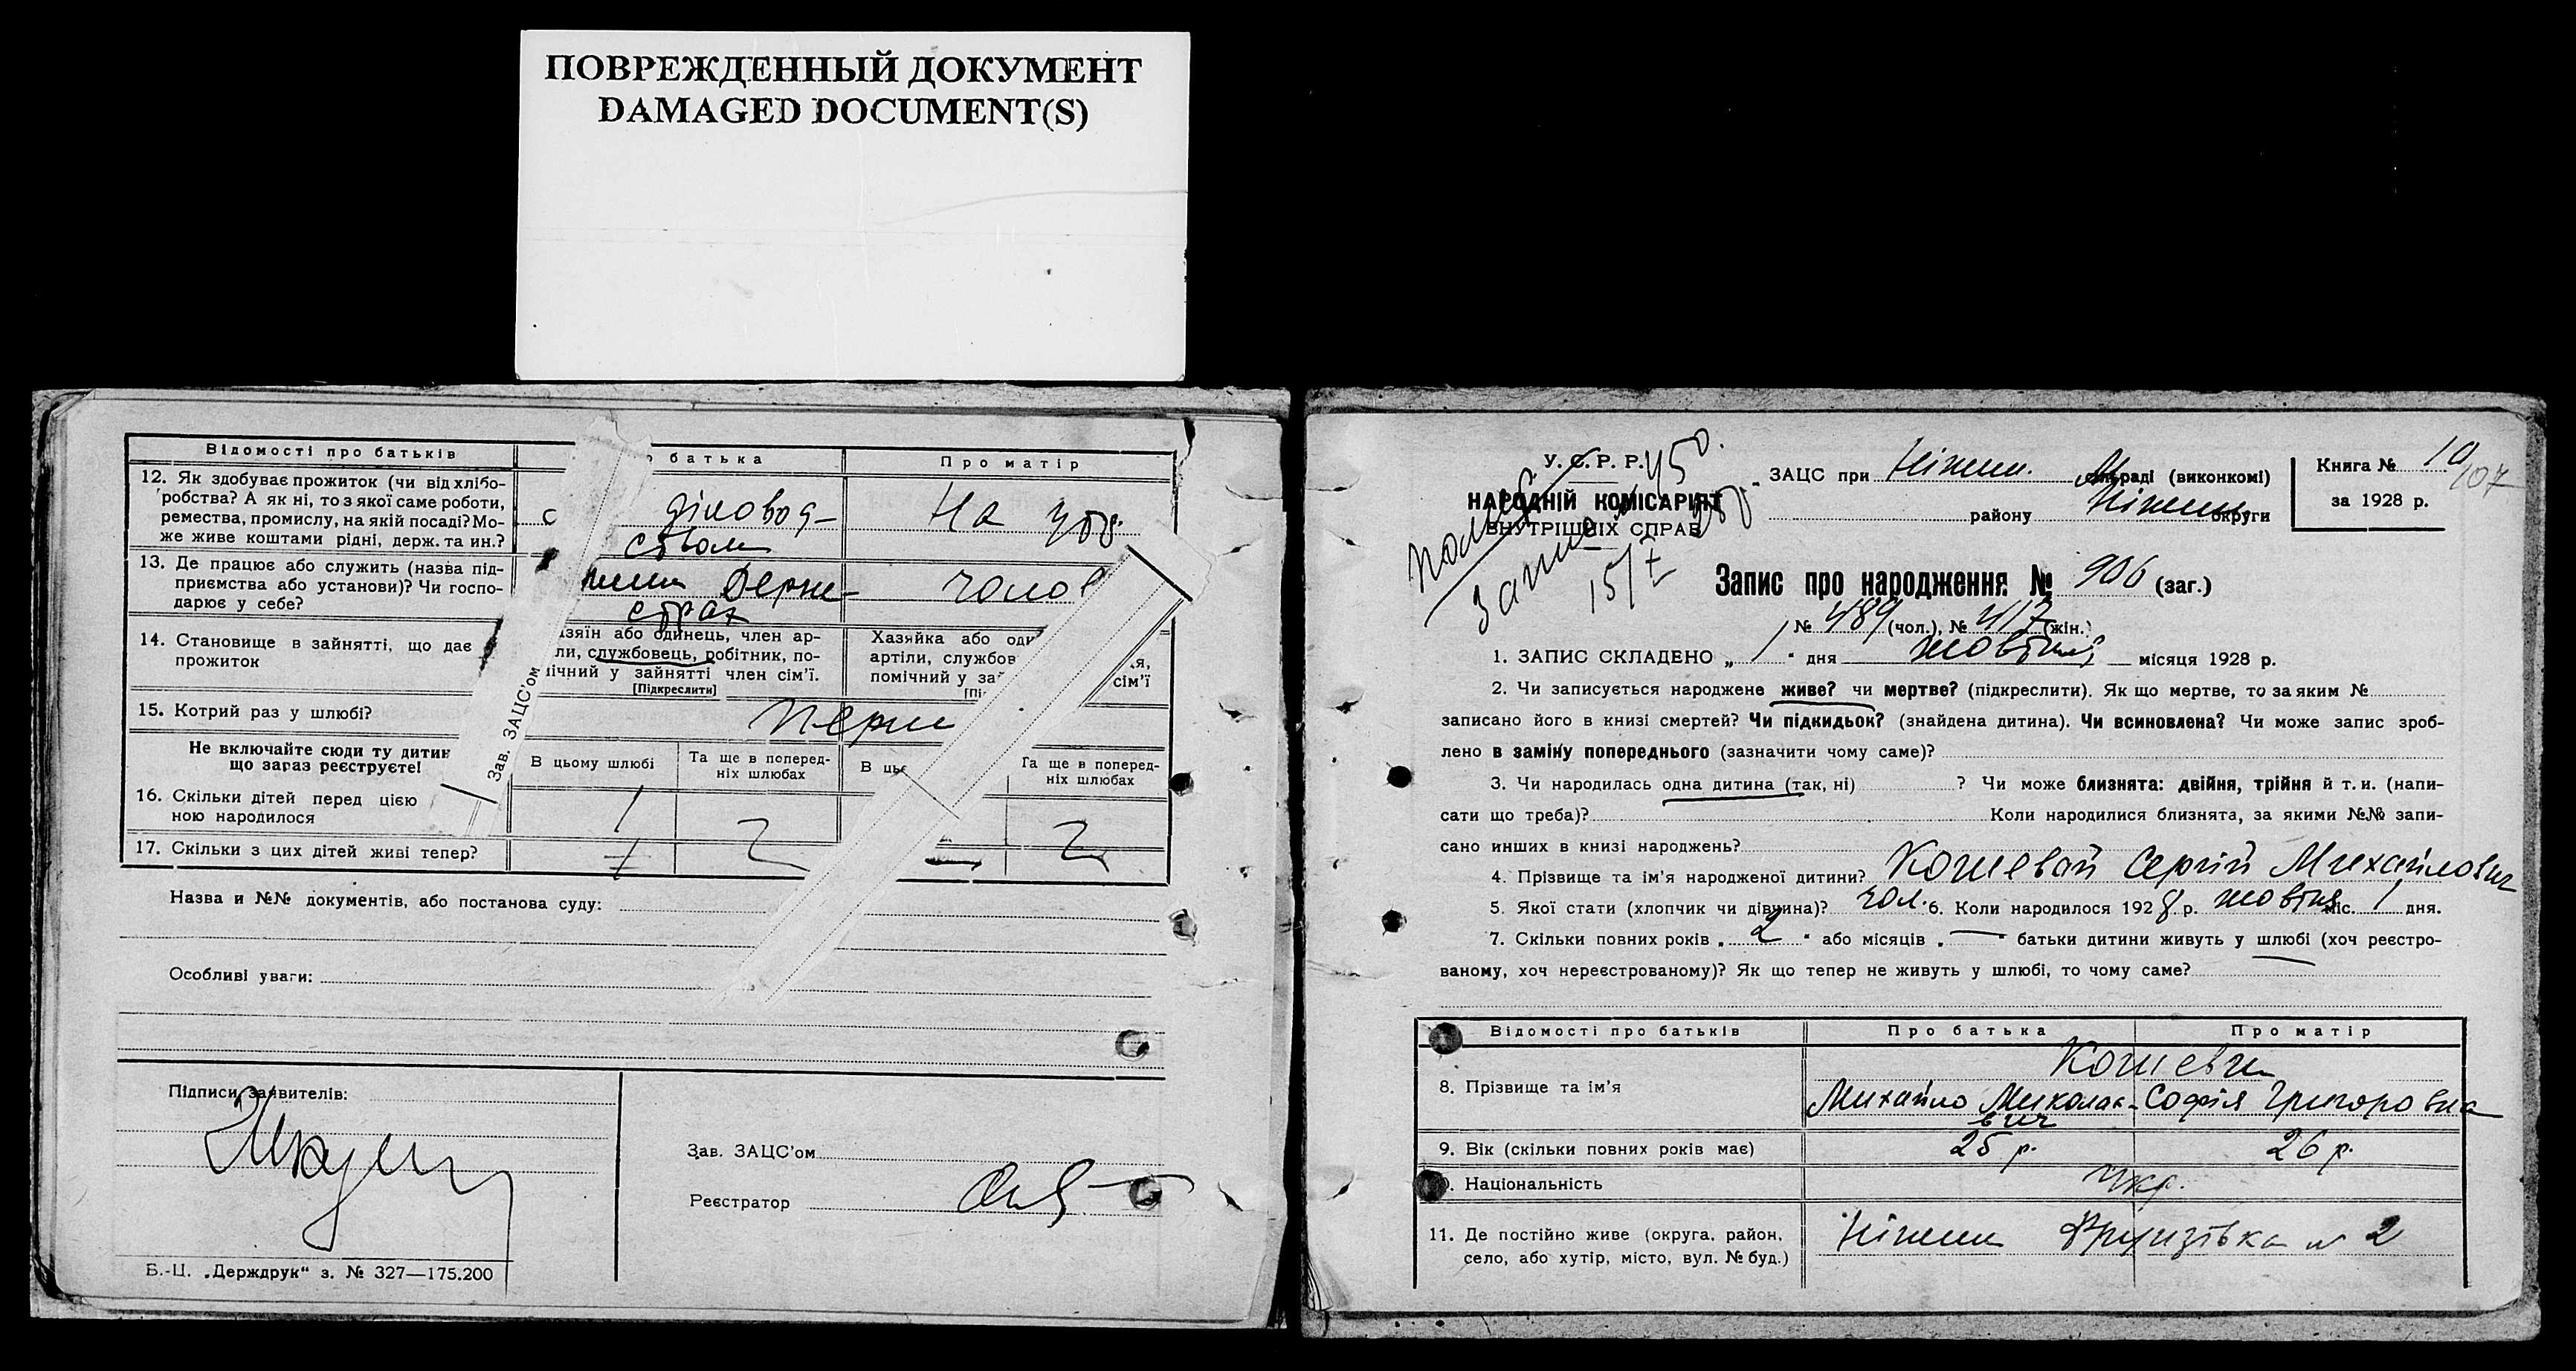 ПОВРЕЖДЕННЫЙ ДОКУМЕНТ
DAMAGED DOCUMENT(S)
Відомості про батьків
о батька
Про матір
12. Як здобуває прожиток (чи від хлібо-
робства? А як ні, то з якої саме роботи,
ремества, промислу, на якій посаді? Мо-
же живе коштами рідні, держ. та ин.?
с діловод-
ством
На утр.
13. Де працює або служить (назва під-
приємства або установи)? Чи госпо-
дарює у себе?
Держ-
страх
чолов
14. Становище в зайнятті, що дає
прожиток
азяїн або одинець, член ар-
ли, службовець, робітник, по-
ічний у зайнятті член сім'ї.
[Підкреслити]
Хазяйка або оди
артіли, службов
помічний у за
[Пі
я,
сім'ї
15. Котрий раз у шлюбі?
перш
Зав. ЗАЦС'ом
Не включайте сюди ту дитин
що зараз реєструєте!
В цьому шлюбі
Та ще в поперед-
ніх шлюбах
В цьс
Та ще в поперед-
ніх шлюбах
16. Скільки дітей перед цією
ною народилося
1
17. Скільки з цих дітей живі тепер?
Назва и №№ документів, або постанова суду:
Особливі уваги:
Підписи заявителів:
Зав. ЗАЦС'ом
Реєстратор
Б.-Ц. „Держдрук“ з. № 327—175.200
У. С. Р. Р.
НАРОДНІЙ КОМІСАРІЯТ
ВНУТРІШНІХ СПРАВ
450.
15/X
ЗАЦС при Ніжин. М раді (виконкомі)
району Ніжин округи
Книга № 10
за 1928 р.
107
Запис про народження № 906 (заг.)
№ 489 (чол.), № 417 (жін.)
1. ЗАПИС СКЛАДЕНО „ 1 “ дня жовтня місяця 1928 р.
2. Чи записується народжене живе? чи мертве? (підкреслити). Як що мертве, то за яким №
записано його в книзі смертей? Чи підкидьок? (знайдена дитина). Чи всиновлена? Чи може запис зроб-
лено в заміну попереднього (зазначити чому саме)?
3. Чи народилась одна дитина (так, ні) ? Чи може близнята: двійня, трійня й т. и. (напи-
сати що треба)? Коли народилися близнята, за якими №№ запи-
сано инших в книзі народжень?
4. Прізвище та ім'я народженої дитини? Кошевой Сергій Михайлович
5. Якої стати (хлопчик чи дівчина)? чол. 6. Коли народилося 1928 р. жовтня міс. 1 дня.
7. Скільки повних років „ 2 “ або місяців „ — “ батьки дитини живуть у шлюбі (хоч реєстро-
ваному, хоч нереєстрованому)? Як що тепер не живуть у шлюбі, то чому саме?
Відомості про батьків
Про батька
Про матір
8. Прізвище та ім'я
Кошеви
Михайло Миколає-
вич
Софія Григоровна
9. Вік (скільки повних років має)
25 р.
26 р.
. Національність
Укр.
11. Де постійно живе (округа, район,
село, або хутір, місто, вул. № буд.)
Ніжин Фрунзівка № 2